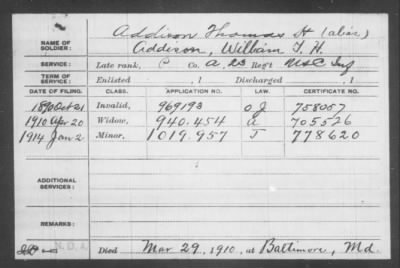 NAME OF SOLDIER: Addison Thomas H (alias)
Addison, William T. H.
SERVICE: Late rank, P Co. A, 23 Regt USC Inf
TERM OF SERVICE: Enlisted , 1 Discharged , 1
DATE OF FILING. CLASS. APPLICATION NO. LAW. CERTIFICATE NO.
1890 Oct 21 Invalid, 969193 O J 758057
1910 Apr 20 Widow, 940.454 a 705526
1914 Jan 2 Minor, 1019.957 J 778620
ADDITIONAL SERVICES:
REMARKS:
Died Mar 29, 1910, at Baltimore, Md.